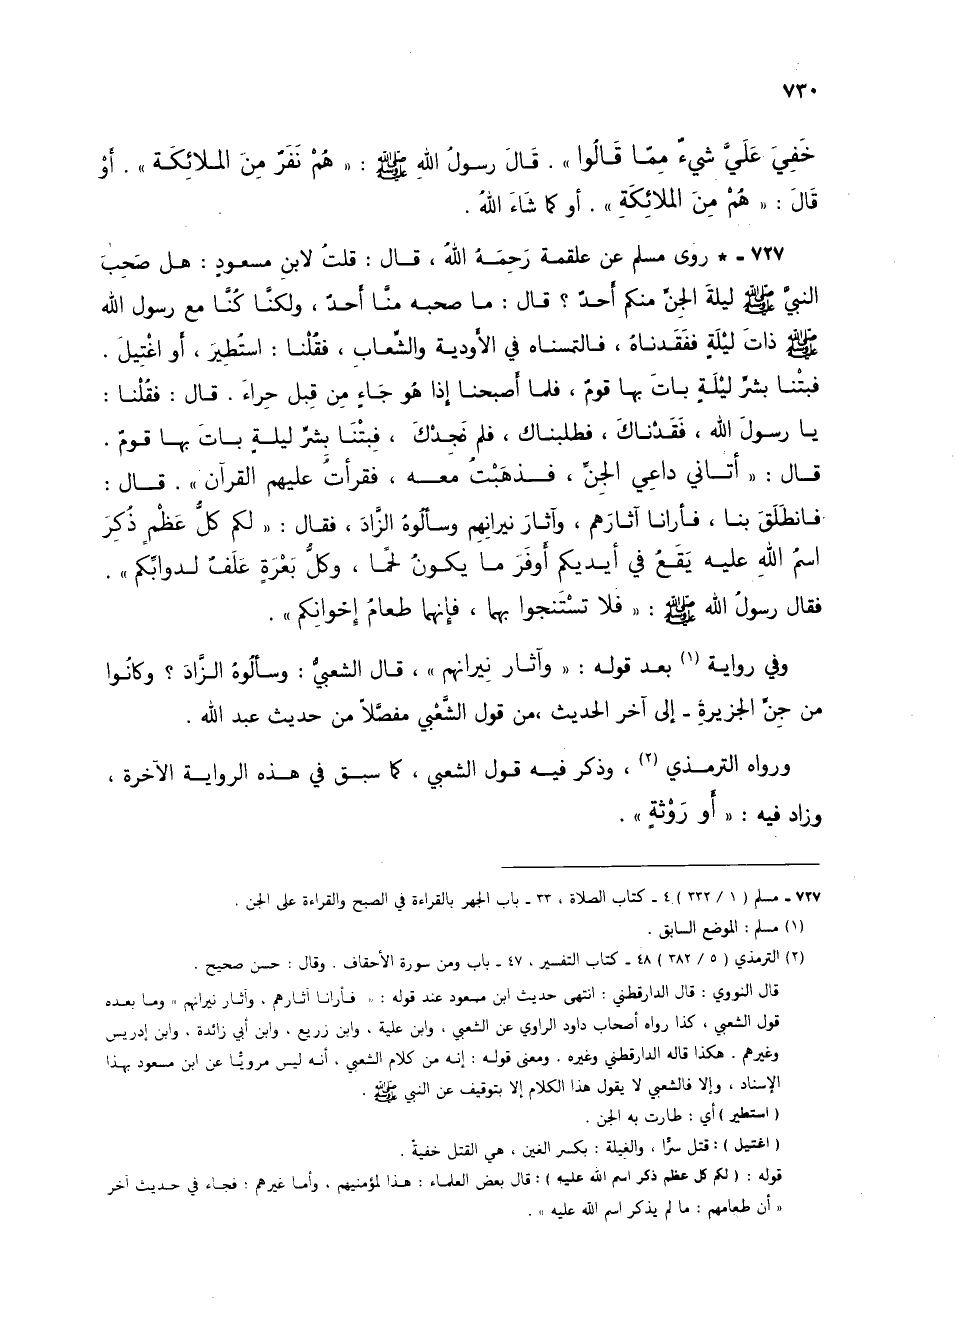 ٧٣٠
خَفِيَ عَلَيَّ شيءٌ مِمّا قَالُوا » . قَالَ رسولُ الله ﷺ : « هُمْ نَفَرٌ مِنَ الملائِكَة » . أوْ
قَالَ : « هُمْ مِنَ الملائِكَةِ » . أو كا شَاءَ اللهُ .
٧٢٧ - * روى مسلم عن علقمة رَحِمَهُ اللهُ ، قال : قلتُ لابن مسعودٍ : هل صَحِبَ
النبيَّ ﷺ ليلةَ الجنِّ منكم أحدٌ ؟ قال : ما صحبه منَّا أحدٌ ، ولكنَّا كُنَّا مع رسول الله
ﷺ ذاتَ ليْلَةٍ ففَقَدناهُ ، فالتمسناه في الأودية والشِّعاب ، فقُلْنا : استُطيرَ ، أو اغْتِيلَ .
فبتْنا بشرِّ ليْلَةٍ باتَ بها قومٌ ، فلما أصبحنا إذا هُو جَاءٍ مِن قبل حِراءَ . قال : فقُلْنا :
يا رسولَ الله ، فَقَدْناكَ ، فطلبناك ، فلم نَجِدْكَ ، فبِتْنَا بشرِّ ليلةٍ باتَ بها قومٌ .
قال : « أتاني داعي الجنِّ ، فذهَبْتُ معه ، فقرأتُ عليهم القرآن » . قال :
فانطَلَقَ بنا ، فأرانا آثارَهم ، وآثارَ نيرانِهم وسألُوهُ الزَّادَ ، فقال : « لكم كلُّ عَظْمٍ ذُكِرَ
اسمُ اللهِ عليه يَقَعُ في أيديكم أوفَرَ ما يكونُ لحمًا ، وكلُّ بَعْرَةٍ عَلَفٌ لدوابِّكم » .
فقال رسولُ الله ﷺ : « فلا تسْتَنجوا بها ، فإنها طعامُ إخوانِكم » .
وفي رواية (١) بعد قوله : « وآثار نِيرانهم » ، قال الشعبيُّ : وسألُوهُ الزَّادَ ؟ وكانُوا
من جنِّ الجزيرةِ - إلى آخر الحديث ،من قول الشَّعْبي مفصَّلاً من حديث عبد الله .
ورواه الترمذي (٢) ، وذكر فيه قول الشعبي ، كا سبق في هذه الرواية الآخرة ،
وزاد فيه : « أو رَوْثةٍ » .
٧٢٧ - مسلم ( ١ / ٣٣٢ ) ٤ - كتاب الصلاة ، ٣٣ - باب الجهر بالقراءة في الصبح والقراءة على الجن .
(١) مسلم : الموضع السابق .
(٢) الترمذي ( ٥ / ٣٨٢ ) ٤٨ - كتاب التفسير ، ٤٧ - باب ومن سورة الأحقاف . وقال : حسن صحيح .
قال النووي : قال الدارقطني : انتهى حديث ابن مسعود عند قوله : « فأرانا آثارهم ، وآثار نيرانهم » وما بعده
قول الشعبي ، كذا رواه أصحاب داود الراوي عن الشعبي ، وابن علية ، وابن زريع ، وابن أبي زائدة ، وابن إدريس
وغيرهم . هكذا قاله الدارقطني وغيره . ومعنى قوله : إنه من كلام الشعبي ، أنه ليس مرويًّا عن ابن مسعود بهذا
الإسناد ، وإلا فالشعبي لا يقول هذا الكلام إلا بتوقيف عن النبي ﷺ .
( استطير ) أي : طارت به الجن .
( اغتيل ) : قتل سرًّا ، والغيلة : بكسر الغين ، هي القتل خفيةً .
قوله : ( لكم كل عظم ذكر اسم الله عليه ) : قال بعض العلماء : هذا لمؤمنيهم ، وأما غيرهم : فجاء في حديث آخر
« أن طعامهم : ما لم يذكر اسم الله عليه » .